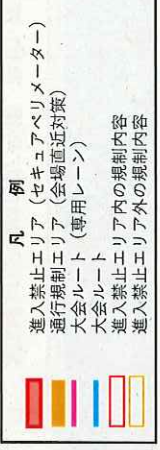 凡例
進入禁止エリア(セキュアペリメーター)
通行規制エリア(会場直近対策)
大会ルート(専用レーン)
大会ルート
進入禁止エリア内の規制内容
進入禁止エリア外の規制内容